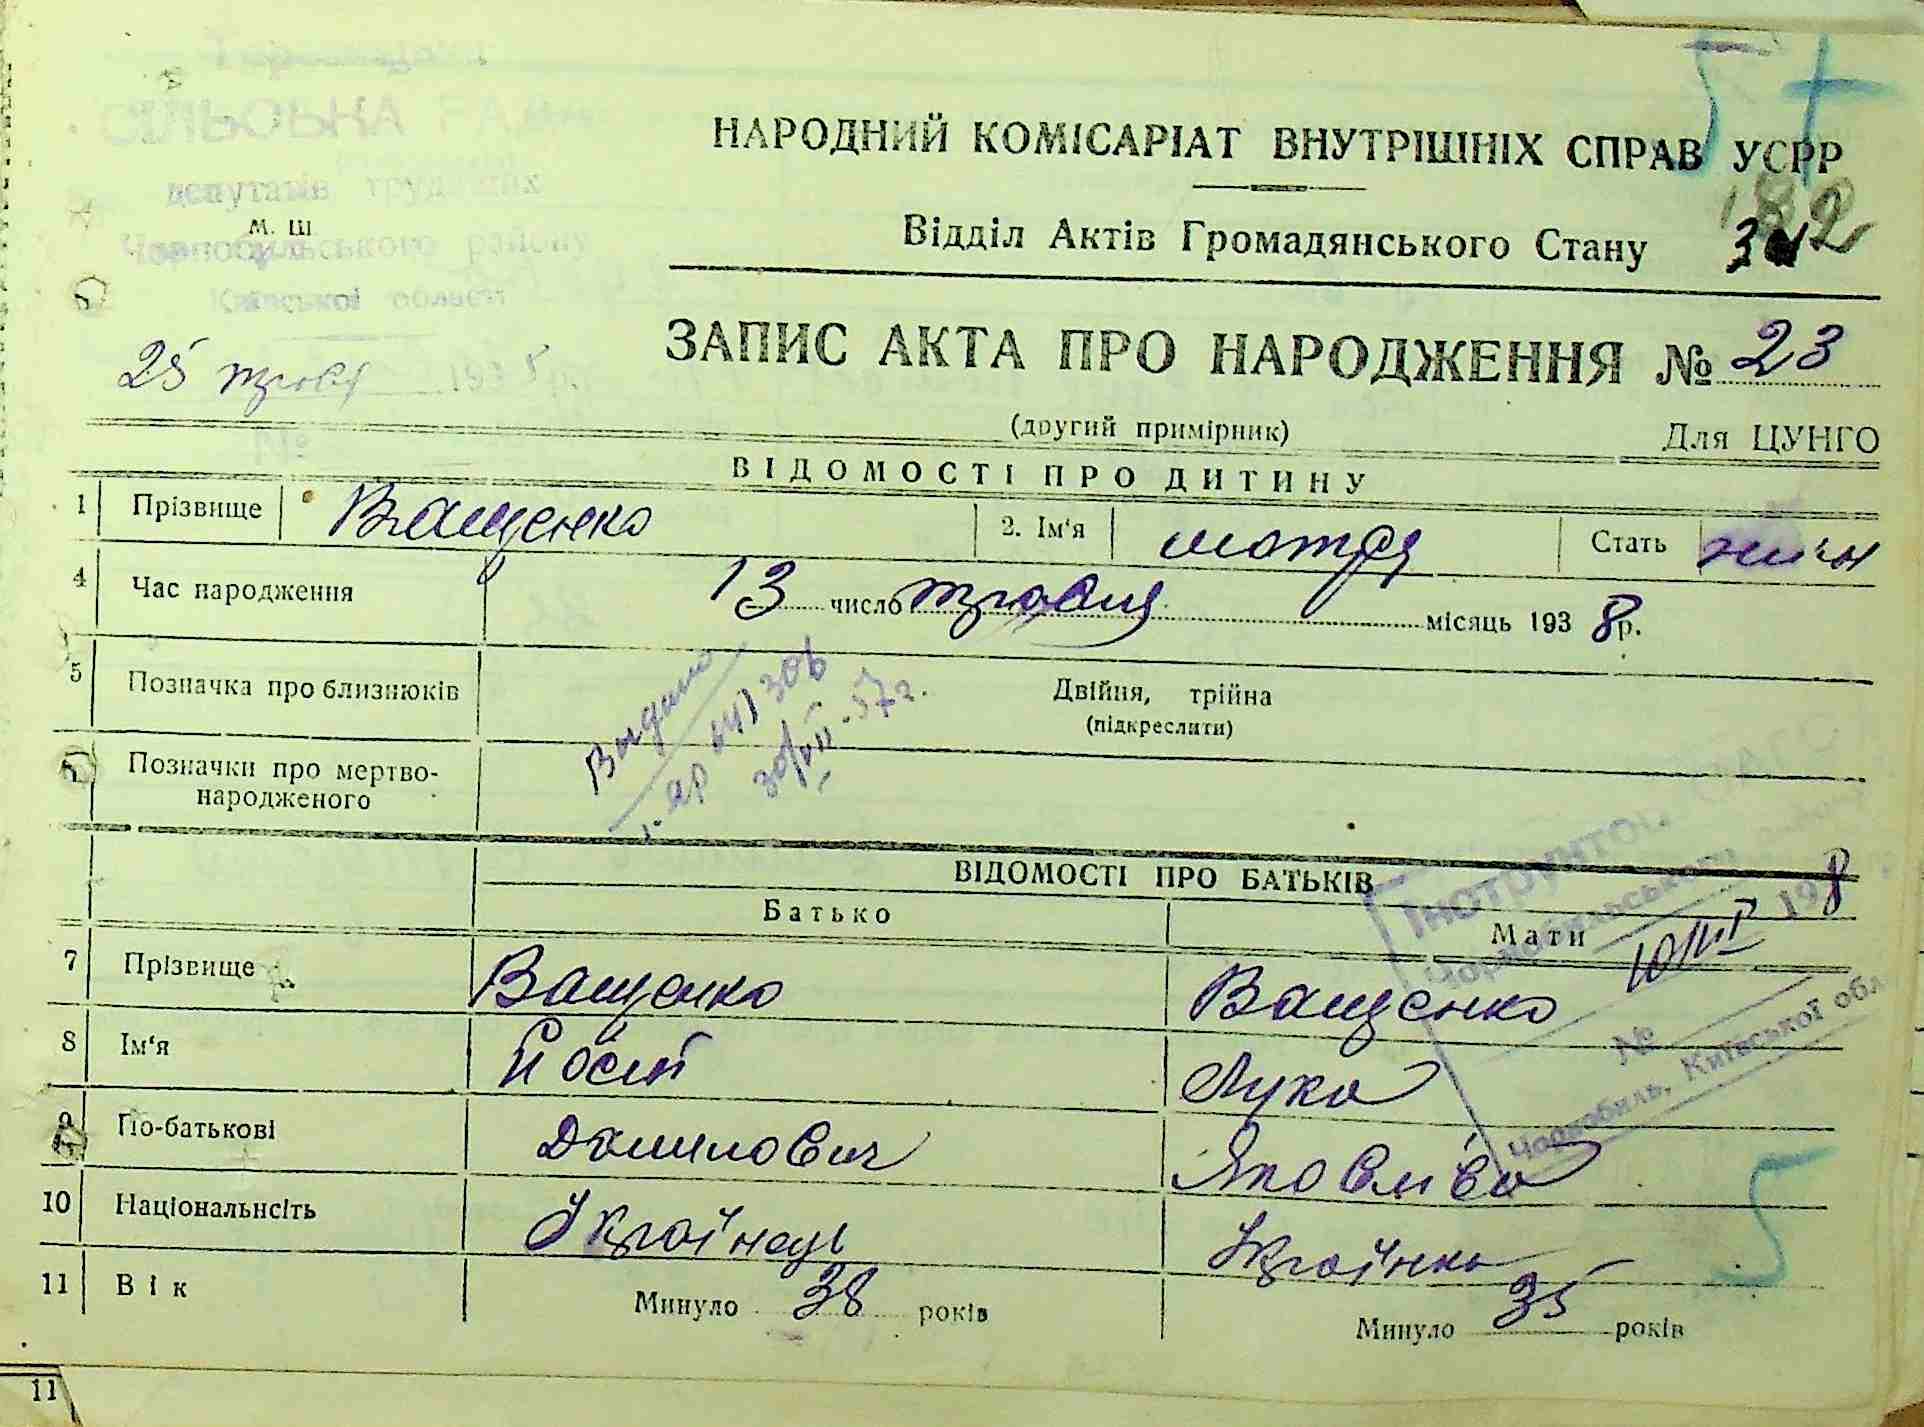 СІЛЬСЬКА РАДА
депутатів трудящих
Чорнобильського району
Київської області
М. Ш
5+
НАРОДНИЙ КОМІСАРІАТ ВНУТРІШНІХ СПРАВ УСРР
182
Відділ Актів Громадянського Стану
25 травня 1938 р.
ЗАПИС АКТА ПРО НАРОДЖЕННЯ № 23
(другий примірник) Для ЦУНГО
ВІДОМОСТІ ПРО ДИТИНУ
1 Прізвище Ващенко 2. Ім'я мотря Стать жін
4 Час народження 13 число травня місяць 1938 р.
5 Позначка про близнюків Двійня, трійна
(підкреслити)
Выдано
30/VII-57г.
Позначки про мертво-
народженого
ВІДОМОСТІ ПРО БАТЬКІВ
Батько Мати
Інструктор
Чорнобильського
198
№
Чорнобиль, Київської обл
7 Прізвище Ващенко Ващенко
8 Ім'я Йосип Лукія
9 По-батькові Данилович Яковлівна
10 Національнсіть Українець Українка
5
11 Вік Минуло 38 років Минуло 35 років
11